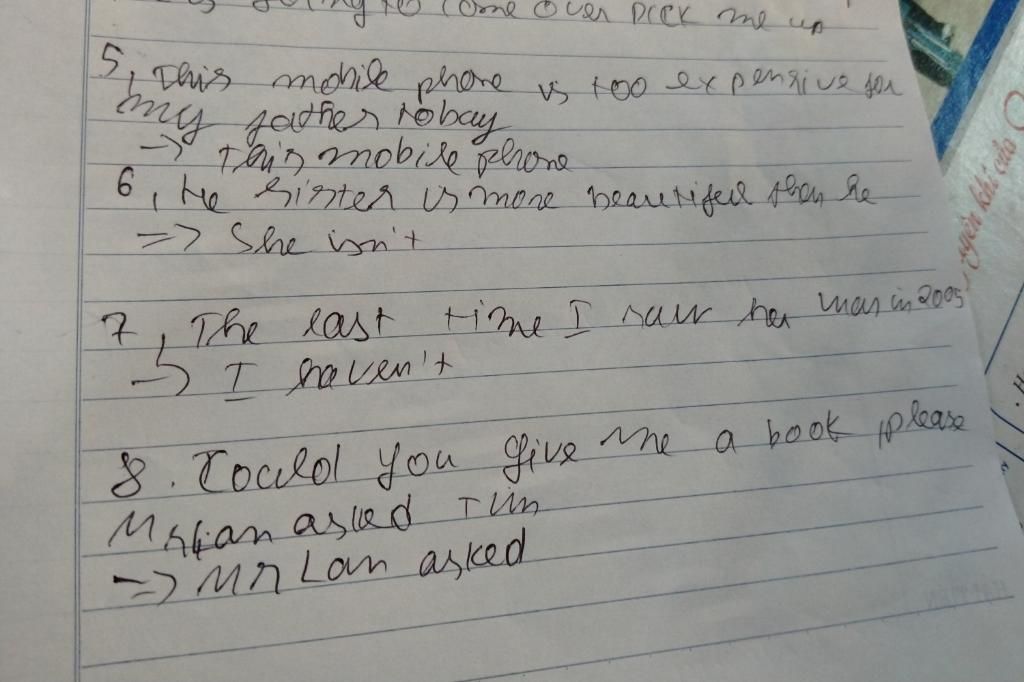 to come over pick me up
5, This mobile phone is too expensive for
my father to bay
-> This mobile phone
6, He sister is more beautiful than he
=> She isn't
7, The last time I saw her was in 2005
-> I haven't
8. Could you give me a book, please
Mr Lan asked Tim
=> Mr Lan asked